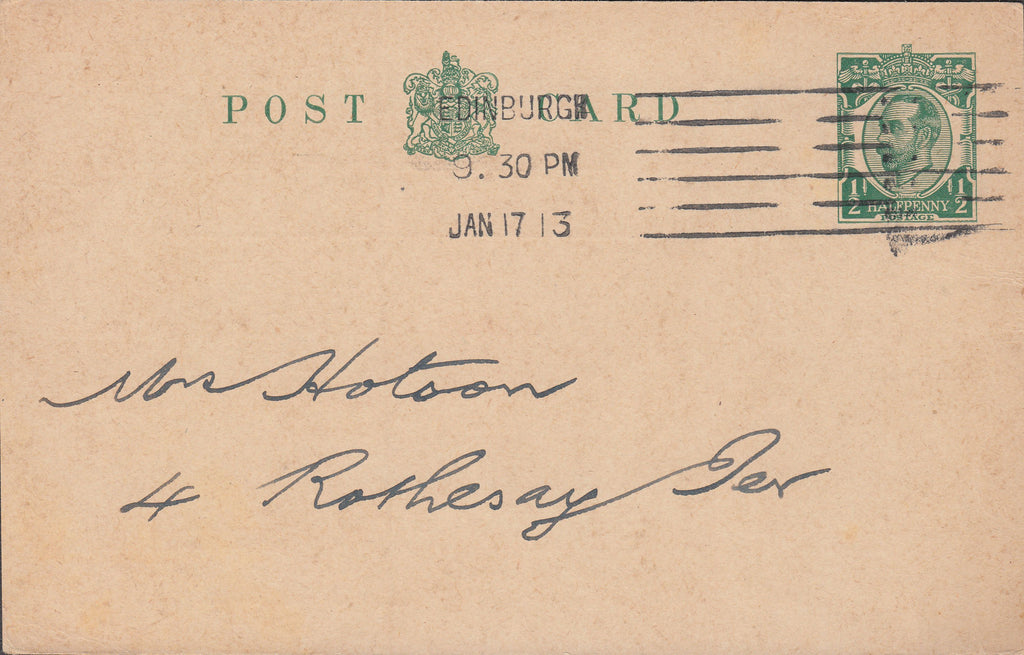 POST CARD
EDINBURGH
9. 30 PM
JAN 17 13
1/2 HALFPENNY 1/2
POSTAGE
Mrs Hotson
4 Rothesay Ter